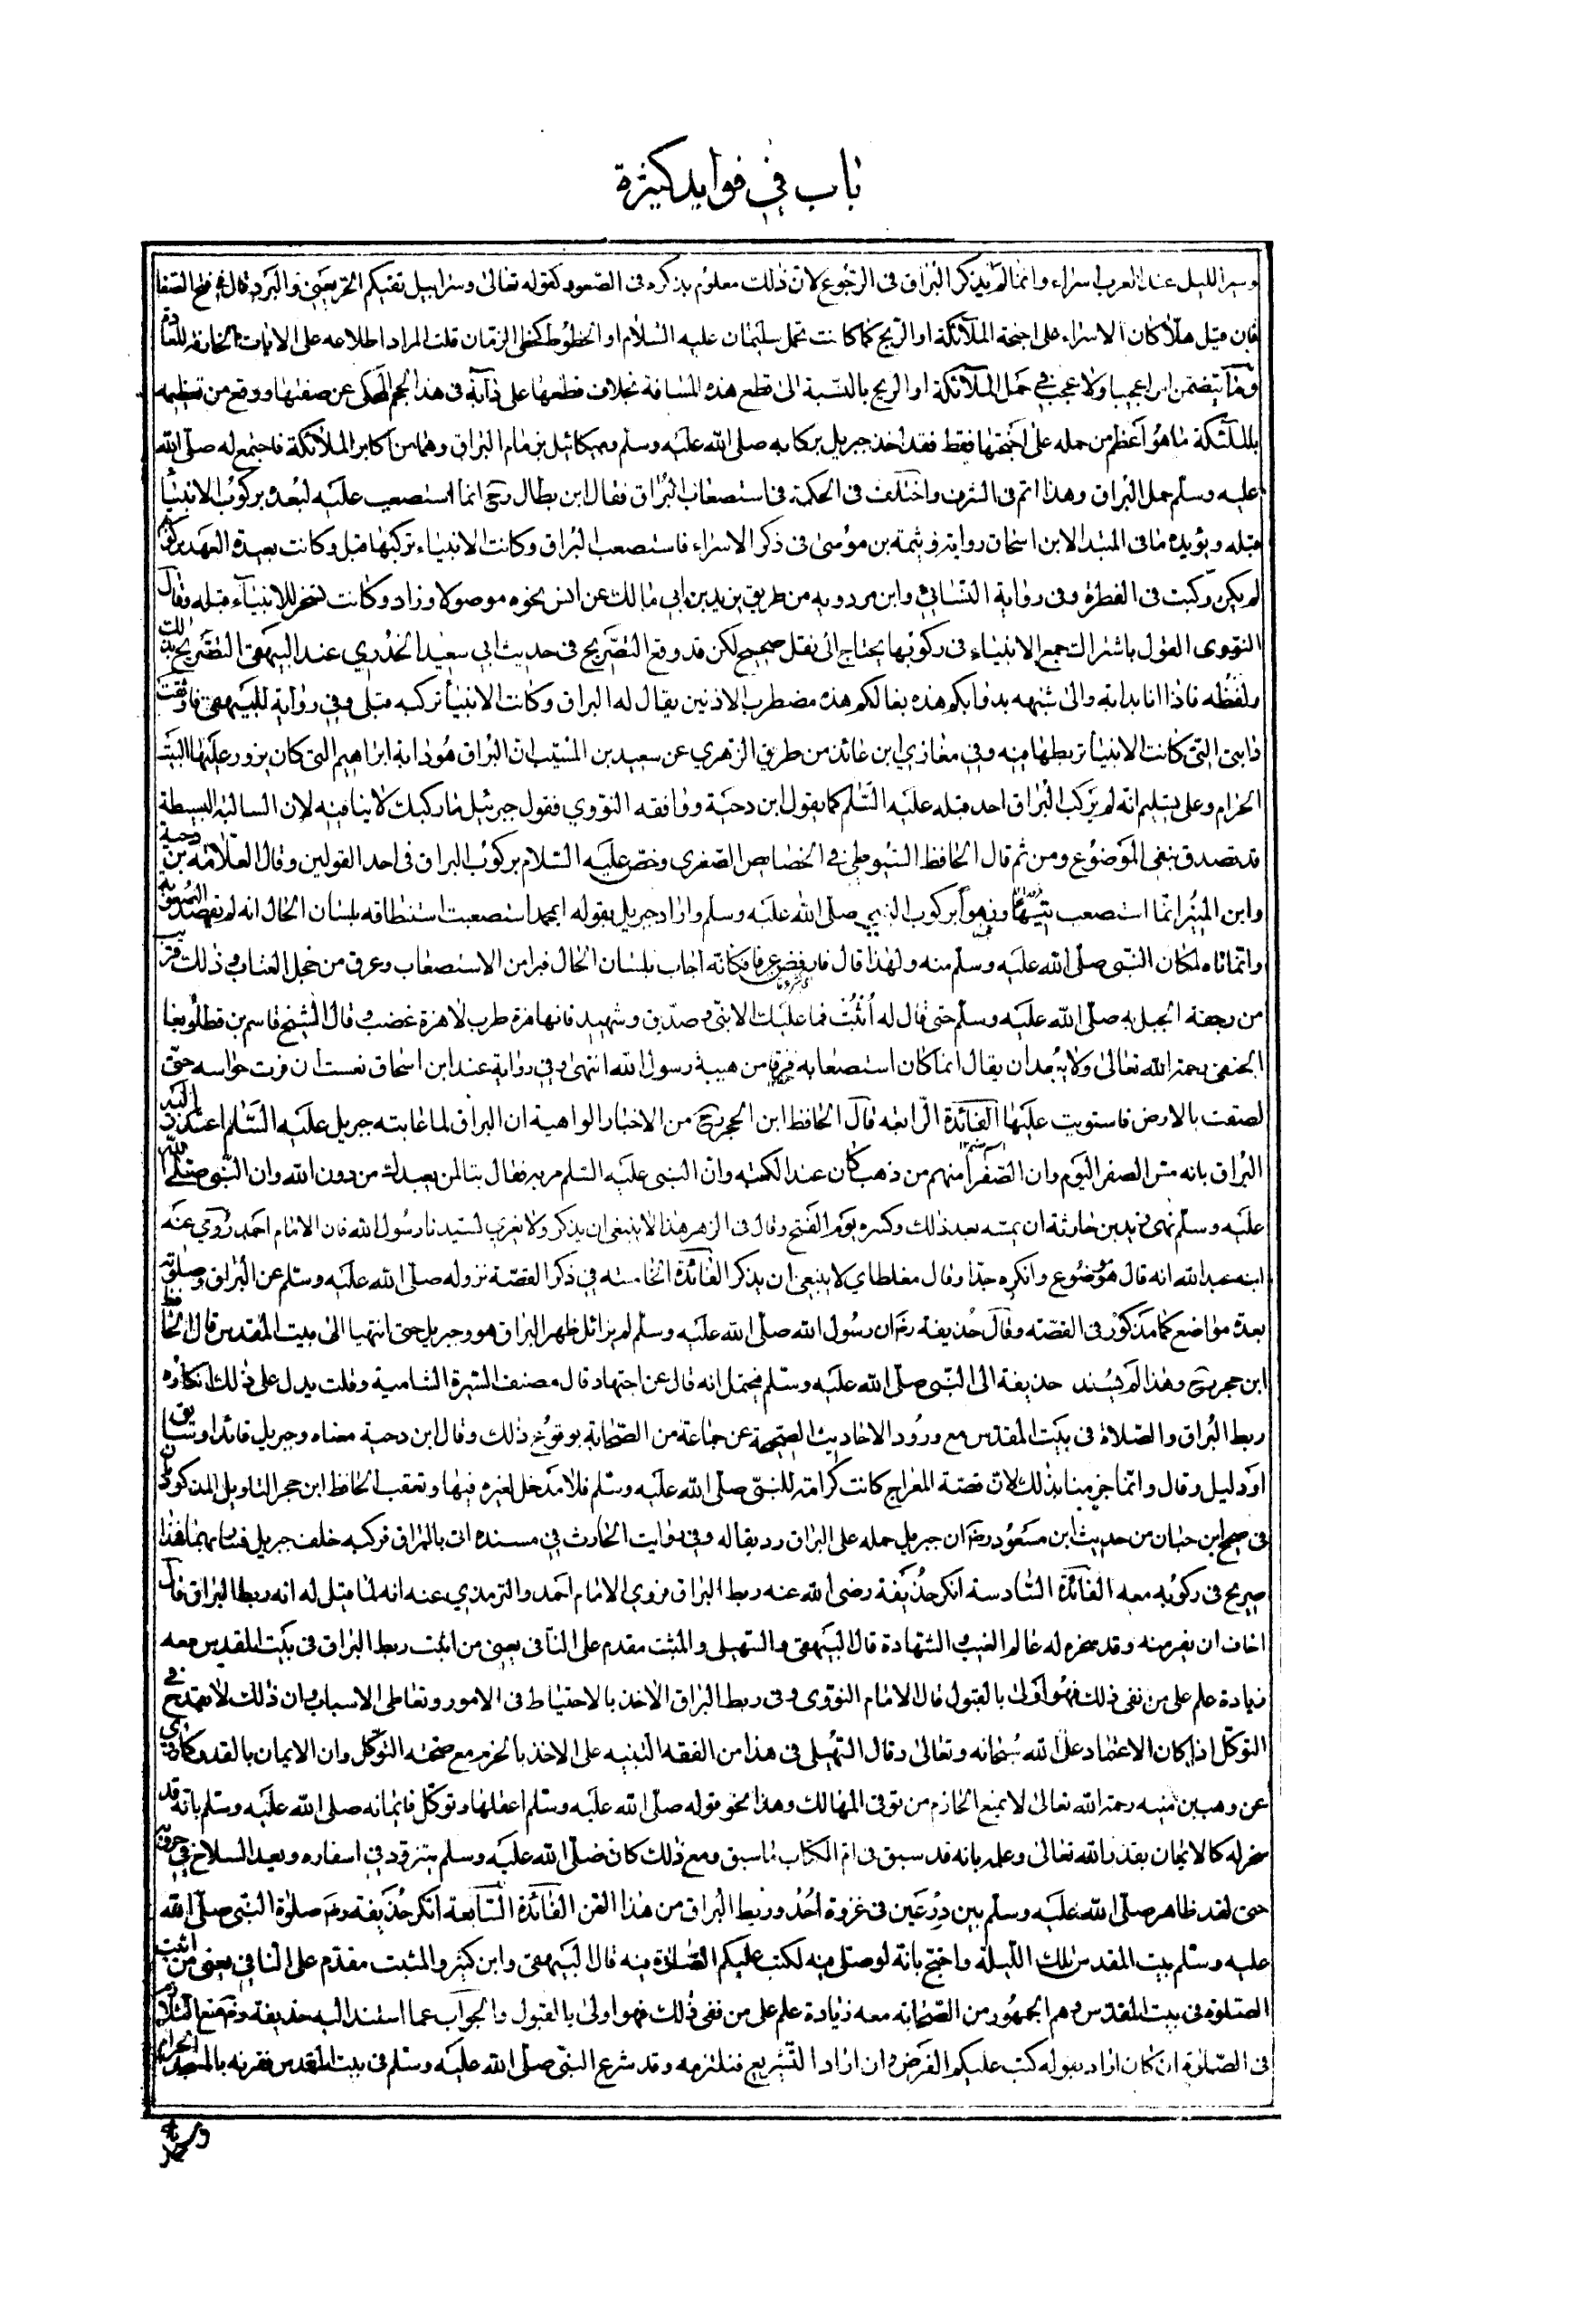 باب في فوايد كثيرة
وسير الليل عند العرب اسراء وانما لم يذكر البراق فى الرجوع لان ذلك معلوم بذكره فى الصعود كقوله تعالى وسرابيل تقيكم الحر يعني والبرد قال
فان قيل هلا كان الاسراء على اجنحة الملآئكة او الريح كما كانت تحمل سليمان عليه السلام او الخطوط كطى الزمان قلت المراد اطلاعه على الايات الخارقة للعادة
وما يتضمن امرا عجيبا ولا عجب في حمل الملآئكة او الريح بالنسبة الى قطع هذه المسافة بخلاف قطعها على دآبة فى هذا الحجم المحكى عن صفتها ووقع من تعظيمه
بالملآئكة ما هو اعظم من حمله على اجنحتها فقط فقد اخذ جبريل بركابه صلى الله عليه وسلم وميكائيل بزمام البراق وهما من اكابر الملائكة فاجتمع له صلى الله
عليه وسلم حمل البراق وهذا اتم فى الشرف واختلف فى الحكمة فى استصعاب البراق فقال ابن بطال رح انما استصعب عليه لبعده بركوب الانبيآء
قبله ويؤيده ما فى المبتدا لابن اسحاق رواية وثيمة بن موسى فى ذكر الاسراء فاستصعب البراق وكانت الانبياء تركبها قبل وكانت بعيدة العهد بركوبهم
لم يكن ركبت فى الفطرة وفى رواية النسائي وابن مردويه من طريق يزيد بن ابي مالك عن انس نحوه موصولا وزاد وكانت تسخر للانبيآء قبله وقال
النووى القول باشتراك جميع الانبياء فى ركوبها يحتاج الى نقل صحيح لكن قد وقع التصريح فى حديث ابي سعيد الخدري عند البيهقي التصريح بذلك
ولفظه فاذا انا بدابة والى شبهه بدوابكم هذه بغالكم هذه مضطرب الاذنين يقال له البراق وكانت الانبيآ تركبه قبلى وفي رواية للبيهقي فاوثقت
دابتى التى كانت الانبيآ تربطها فيه وفي مغازي ابن عائذ من طريق الزهري عن سعيد بن المسيب ان البراق هو دابة ابراهيم التى كان يزور عليها البيت
الحرام وعلى تسليم انه لم يركب البراق احد قبله عليه السلم كما يقول ابن دحية ووافقه النووي فقول جبرئيل ما ركبك لا ينافيه لان السالبة البسيطة
قد تصدق بنفى الموضوع ومن ثم قال الحافظ السيوطي في الخصايص الصغرى وخص عليه السلام بركوب البراق فى احد القولين وقال العلامة بن دحية
وابن المنير انما استصعب تيها وزهوا بركوب النبي صلى الله عليه وسلم واراد جبريل بقوله ابمحمد استصعبت استنطاقه بلسان الحال انه لم يقصد الصعوبة
وانما تاه لمكان النبى صلى الله عليه وسلم منه ولهذا قال فارفض عرقا فكانه اجاب بلسان الحال فبرا من الاستصعاب وعرق من خجل العتاب وذلك قريب
من رجفة الجبل به صلى الله عليه وسلم حتى قال له اثبت فما عليك الا نبى وصديق وشهيد فانها هزة طرب لا هزة غضب وقال الشيخ قاسم بن قطلوبغا
الحنفى رحمة الله تعالى ولا يبعد ان يقال انما كان استصعابه فرقا من هيبة رسول الله انتهى وفي رواية عند ابن اسحاق
لصقت بالارض فاستويت عليها الفائدة الرابعة قال الحافظ ابن الحجر رح من الاخبار الواهية ان البراق لما عاتبه جبريل عليه السلم اعتذر اليه
البراق بانه مس الصفر اليوم وان الصفر اسم صنم من ذهب كان عند الكعبة وان النبى عليه السلم مر به فقال تبا لمن يعبدك من دون الله وان النبى صلى الله
عليه وسلم نهى زيد بن حارثة ان يمسه بعد ذلك وكسره يوم الفتح وقال فى الزهر هذا لا ينبغى ان يذكر ولا يغرى لسيدنا رسول الله فان الامام احمد روي عنه
ابنه عبد الله انه قال موضوع وانكره جدا وقال مغلطاي لا ينبغى ان يذكر الفائدة الخامسة في ذكر القصة نزوله صلى الله عليه وسلم عن البراق وصلوته
بعدة مواضع كما مذكور فى القصة وقال حذيفة رض ان رسول الله صلى الله عليه وسلم لم يزايل ظهر البراق هو وجبريل حتى انتهيا الى بيت المقدس قال الحافظ
ابن حجر رح وهذا لم يسند حذيفة الى النبى صلى الله عليه وسلم فيحتمل انه قال عن اجتهاد قال مصنف السيرة الشامية وقلت يدل على ذلك انكاره
ربط البراق والصلاة فى بيت المقدس مع ورود الاحاديث الصحيحة عن جماعة من الصحابة بوقوع ذلك وقال ابن دحية معناه وجبريل قائد او سايق
او دليل وقال وانما جزمنا بذلك لان قصة المعراج كانت كرامة للنبى صلى الله عليه وسلم فلا مدخل لغيره فيها وتعقب الحافظ ابن حجر التاويل المذكور بان
فى صحيح ابن حبان من حديث ابن مسعود رض ان جبريل حمله على البراق رديفا له وفي روايت الحارث في مسنده اتى بالبراق فركبه خلف جبريل فسار بهما فهذا
صريح فى ركوبه معه الفائدة السادسة انكر حذيفة رضى الله عنه ربط البراق فروي الامام احمد والترمذي عنه انه لما قيل له انه ربط البراق قال
اخاف ان يفر منه وقد سخره له عالم الغيب والشهادة قال البيهقى والسهيلى والمثبت مقدم على النآفى يعنى من اثبت ربط البراق فى بيت المقدس معه
زيادة علم على من نفى ذلك فهو اولى بالقبول قال الامام النووى وفى ربط البراق الاخذ بالاحتياط فى الامور وتعاطى الاسباب وان ذلك لا يقدح في
التوكل اذا كان الاعتماد على الله سبحانه وتعالى وقال السهيلى فى هذا من الفقه التنبيه على الاخذ بالحزم مع صحته التوكل وان الايمان بالقدر كما روي
عن وهب بن منبه رحمة الله تعالى لا يمنع الحازم من توقى المهالك وهذا نحو قوله صلى الله عليه وسلم اعقلها وتوكل فايمانه صلى الله عليه وسلم بانه قد
سخر له كالايمان بقدر الله تعالى وعلمه بانه قد سبق فى ام الكتاب ما سبق ومع ذلك كان صلى الله عليه وسلم يتزود في اسفاره ويعد السلاح في حروبه
حتى لقد ظاهر صلى الله عليه وسلم بين درعين فى غزوة احد وربط البراق من هذا الفن الفائدة السابعة انكر حذيفة رض صلوة النبى صلى الله
عليه وسلم ببيت المقدس تلك الليلة واحتج بانه لو صلى فيه لكتب عليكم الصلاة فيه قال البيهقى وابن كثير والمثبت مقدم على النافي يعنى من اثبت
الصلوة فى بيت المقدس وهم الجمهور من الصحابه معه زيادة علم على من نفى ذلك فهو اولى بالقبول والجواب عما استند اليه حذيفة رض منع التلازم
فى الصلوة ان كان اراد بقوله كتب عليكم الفرض وان اراد التشريع فنلتزمه وقد شرع النبى صلى الله عليه وسلم فى بيت المقدس فقرنه بالمسجد الحرام